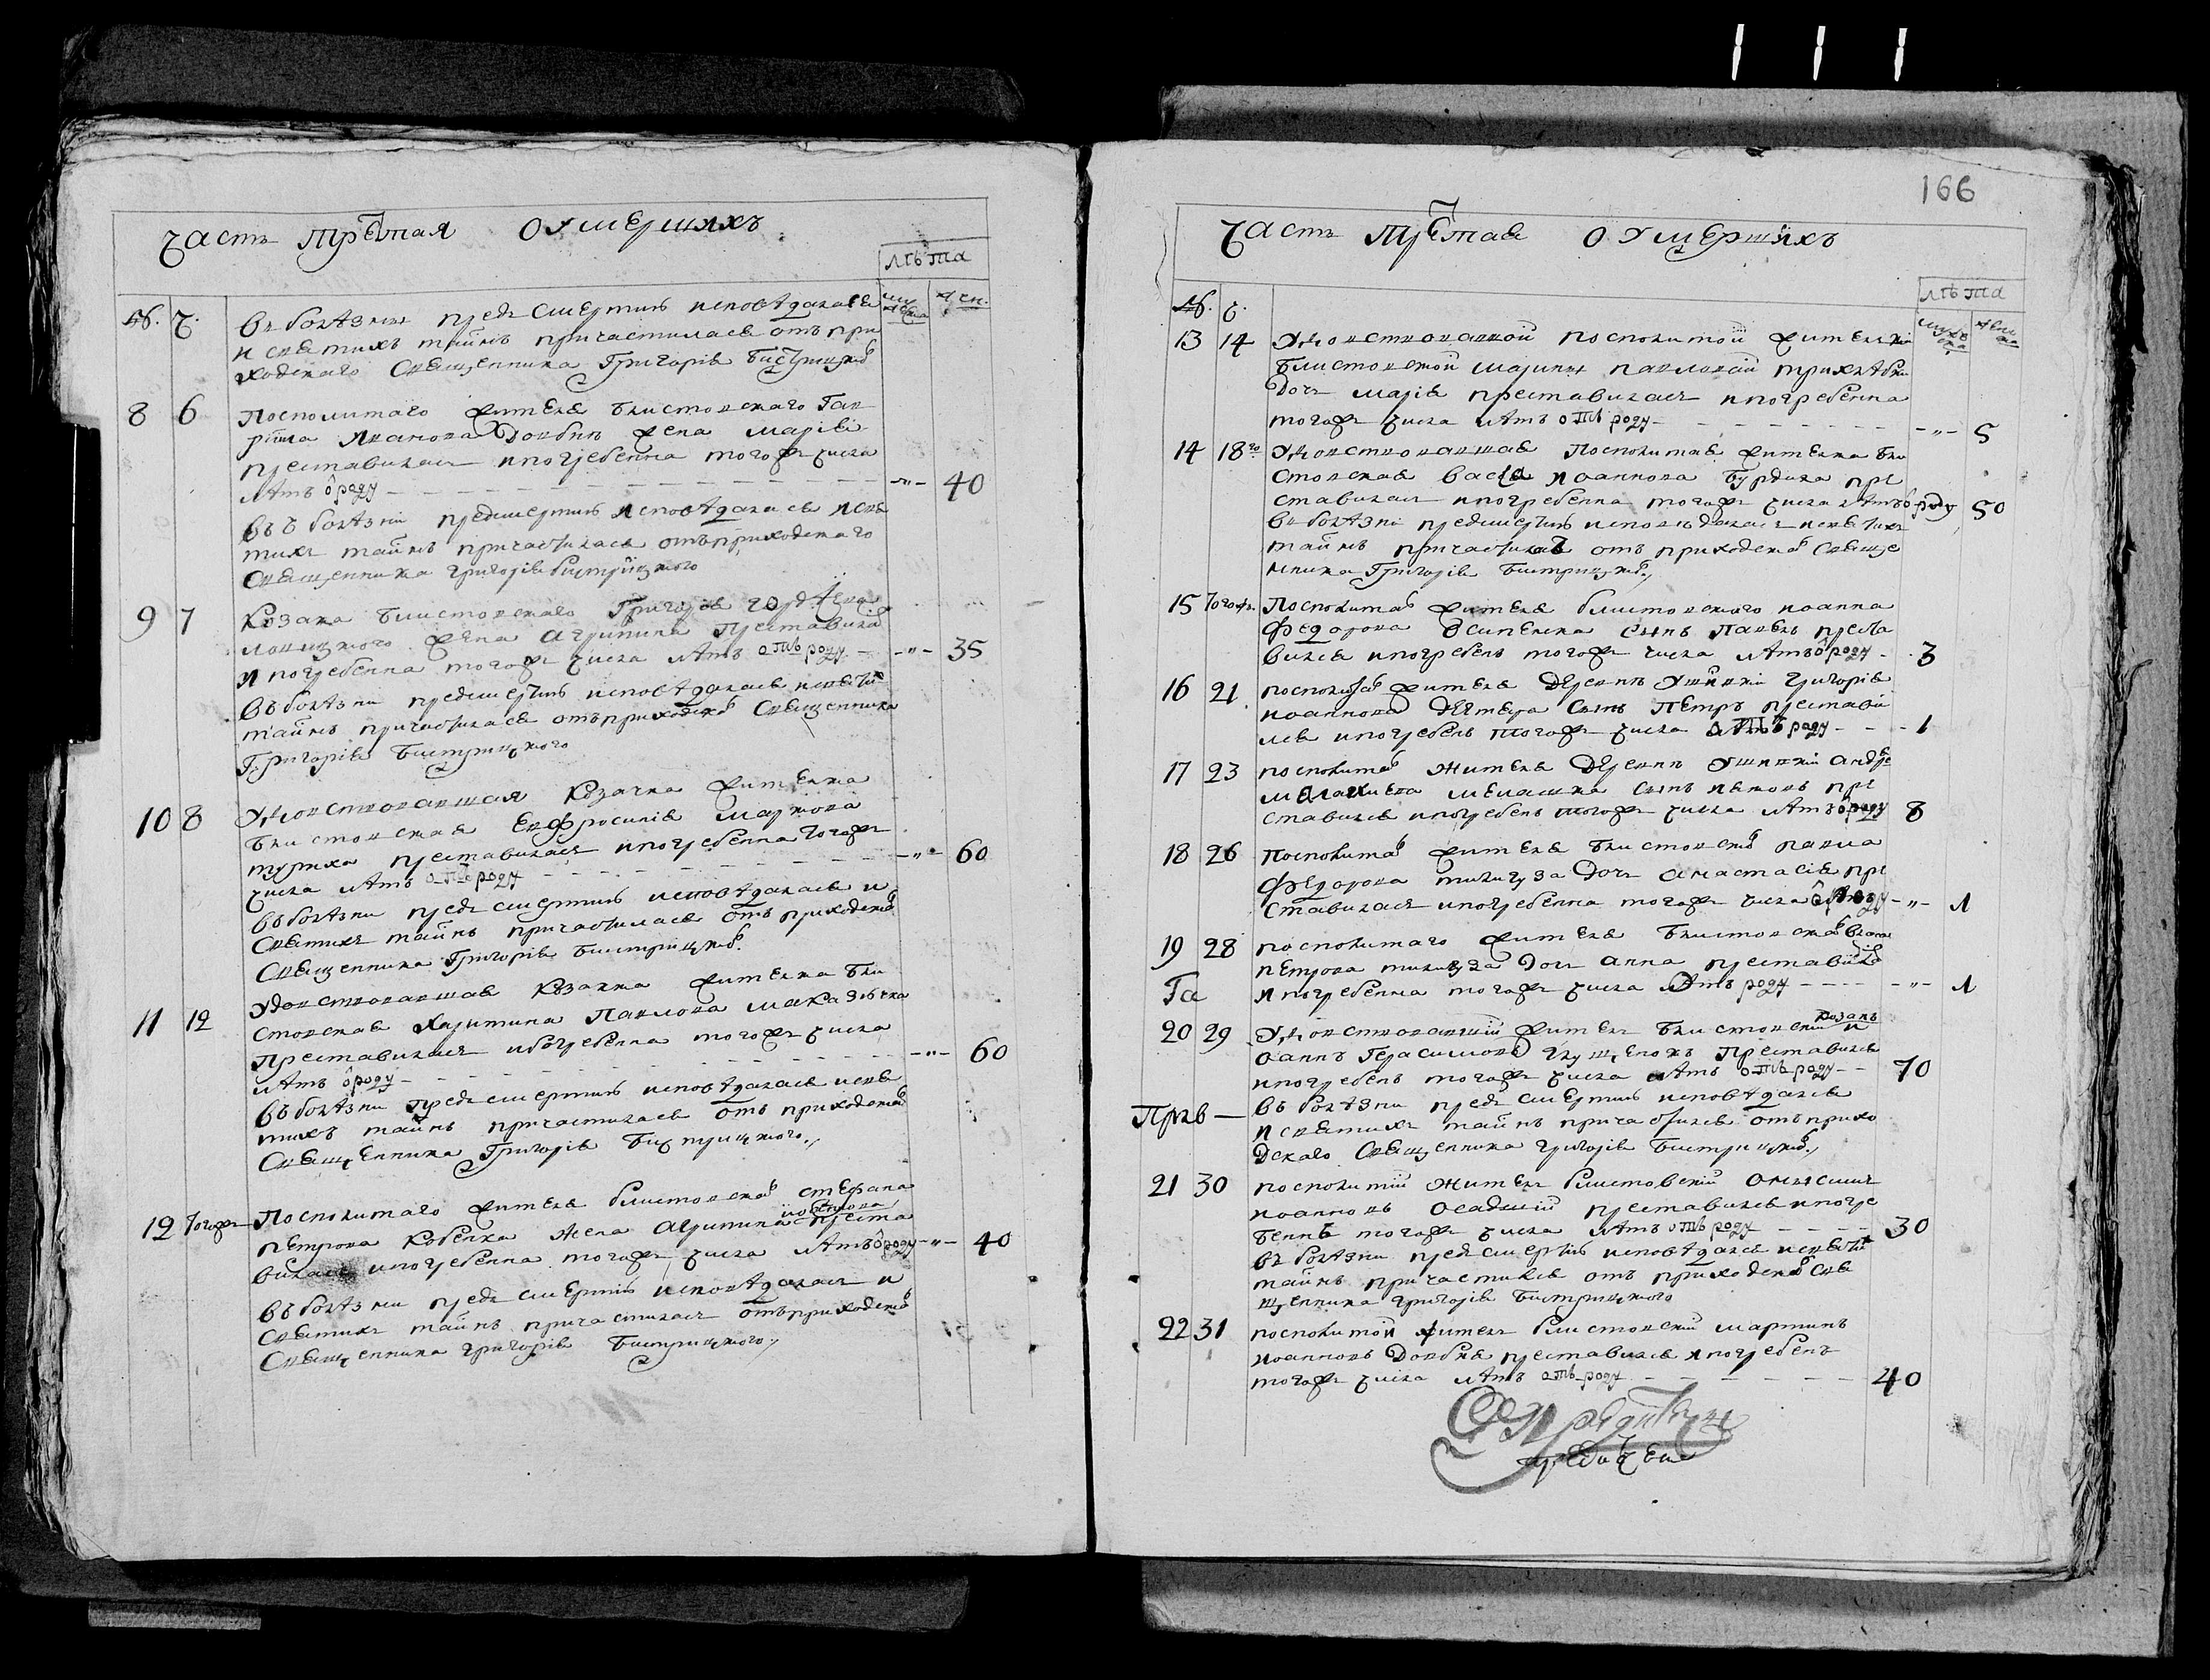 часть третая о умершихъ
лѣта
№. ч. муж жен.
въ болѣзни предъ смертию исповѣдалася
и святихъ таинъ причастилася отъ при
ходскаго священника Григорія Бистрицкого
8 6 Посполитаго жителя Блистовскаго Гав
рила Иванова Довбни жена марія
преставилась и погребенна тогожъ числа
лѣтъ о роду - " - 40
въ болѣзни предсмертию исповѣдалася и свя
тихъ таинъ причастилася отъ приходскаго
священника григорія бистрицкого
9 7 Козака Блистовскаго Григорія
жена агрипина преставила
и погребенна тогожъ числа лѣтъ отъ роду - " - 35
въ болѣзни предсмертию исповѣдалася и святи
таинъ причастилася отъ приходско священника
Григорія Бистрицкого
10 8 Удовствовавшая козачка жителка
Блистовская Евфросинія маркова
преставилась и погребенна тогожъ
числа лѣтъ отъ роду - " - 60
въ болѣзни предъ смертию исповѣдалася и
святихъ таинъ причастилася отъ приходско
священника Григорія Бистрицко
11 12 Удовствовавшая козачка жителка Бли
стовская Харитина Павлова
преставилась и погребенна тогожъ числа
лѣтъ о роду - " - 60
въ болѣзни предъ смертию исповѣдалася и свя
тихъ таинъ причастилася отъ приходско
священника Григорія Бистрицкого
12 тогожъ Посполитаго жителя блистовско стефана
петрова жена агрипина иванова преста
вилась и погребенна тогожъ числа лѣтъ о роду - " - 40
въ болѣзни предъ смертию исповѣдалась и
святихъ таинъ причастилась отъ приходско
священника григорія Бистрицкого
166
часть третая о умершихъ
лѣта
№. ч.
13 14 Удовствовавшой посполитой жителки
Блистовской марини павловой
дочь марія преставилась и погребенна
тогожъ числа лѣтъ отъ роду - " - 5
14 18го Удовствовавшая посполитая жителка Бли
стовская васса иоаннова бурдика пре
ставилась и погребенна тогожъ числа лѣтъ о роду 50
въ болѣзни предсмертию исповѣдалась и святихъ
таинъ причастилась отъ приходско свяще
нника Григорія Бистрицко
15 Тогожъ. Посполита жителя блистовского иоанна
Федорова Осипенка сынъ павелъ преста
вился и погребенъ тогожъ числа лѣтъ о роду 3
16 21 посполита жителя деревнѣ Ушивки григорія
иоаннова дегтера сынъ Петръ престави
лся и погребенъ тогожъ числа лѣтъ роду 1
17 23 посполита жителя деревнѣ Ушивки андре
сынъ пре
ставился и погребенъ тогожъ числа лѣтъ о роду 8
18 26 посполита жителя блистовско павла
Федорова дочь анастасія пре
ставилась и погребенна тогожъ числа - " - 1
19 28 посполитаго жителя Блистовско
петрова дочь анна преставила
Га и погребенна тогожъ числа лѣтъ роду - " - 1
20 29 Удовствовавший житель Блистовский козакъ и
оаннъ Герасимовъ преставился
и погребенъ тогожъ числа лѣтъ отъ роду 70
Прав въ болѣзни предъ смертию исповѣдался
и святихъ таинъ причастился отъ прихо
дскаго священника григорія Бистрицко
21 30 посполитий житель блистовский
иоанновъ преставился и погре
бенъ тогожъ числа лѣтъ отъ роду 30
въ болѣзни предъ смертию исповѣдался и святи
таинъ причастился отъ приходско свя
щенника григорія Бистрицкого
22 31 посполитой житель блистовский мартинъ
иоанновъ Довбня преставился и погребенъ
тогожъ числа лѣтъ отъ роду 40